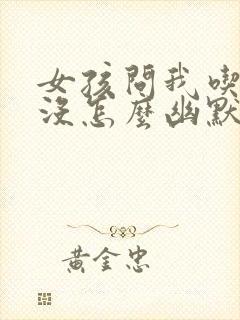 女孩問我喫
沒怎麼幽默
黃金忠